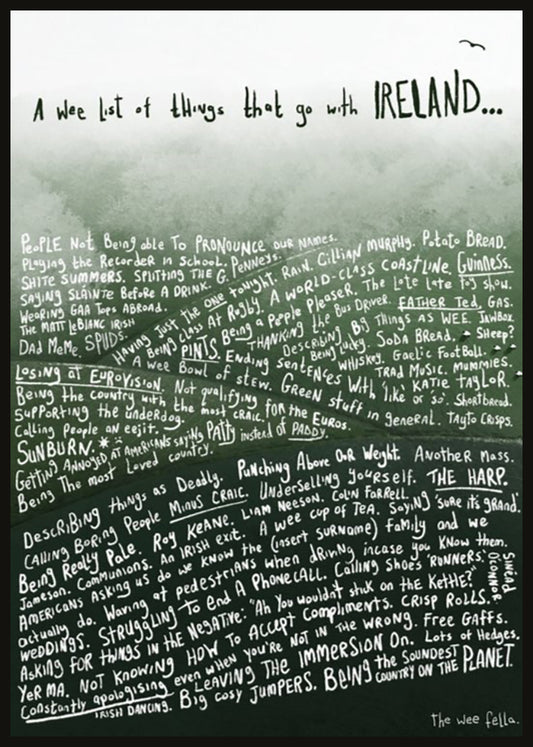 A wee list of things that go with IRELAND...
PEOPLE Not Being able To PRONOUNCE OUR NAMES.
Playing the Recorder in School. Penneys.
SHITE SUMMERS. SPLITTING THE G.
SAYING SLAINTE BEFORE A DRINK.
WEARING GAA TOPS ABROAD.
THE MATT LEBLANC IRISH
DAD MEME. SPUDS.
HAVING JUST THE ONE TONIGHT. RAIN. Cillian MURPHY. Potato BREAD.
A BEING CLASS AT RUGBY. A WORLD-CLASS COASTLINE. Guinness.
PINTS. Being a People Pleaser. The late late toy show.
THANKING the BUS DRIVER. FATHER TED. GAS.
DESCRIBING BIG THINGS AS WEE. JAWBOX.
Being lucky. SODA BREAD. Sheep?
WHISKEY. Gaelic FootBall.
TRAD MUSIC. MUMMIES.
A wee Bowl of stew. Ending SENTENCES WITH 'like' or 'so'. Shortbread.
KATIE TAYLOR.
GREEN stuff in general. TAYTO CRISPS.
LOSING AT EUROVISION. Not qualifying FOR THE EUROS.
Being the country with the most CRAIC.
SUPPORTING the underdog.
Calling People AN eejit.
SUNBURN.
Getting Annoyed at AMERICANS SAYING PATTY instead of PADDY.
Being The most Loved country.
DESCRIBING things as Deadly. Punching Above OUR Weight. Another Mass.
CALLING BORING People MINUS CRAIC. Underselling yourself. THE HARP.
Being Really Pale. Roy KEANE. LIAM NEESON. COLIN FARRELL. SAYING 'SURE it's GRAND'.
Jameson. Communions. An IRISH exit. A wee cup of TEA.
AMERICANS ASKING US do WE KNOW the (insert SURNAME) family and we
actually do. Waving at pedestrians when driving incase you know them.
WEDDINGS. STRUGGLING to END A PHONECALL. Calling Shoes 'RUNNERS'.
SINEAD O'CONNOR.
ASKING FOR THINGS IN the NEGATIVE: "Ah You wouldn't stick on the KETTLE?"
YER MA. NOT KNOWING HOW TO Accept Compliments. CRISP ROLLS.
Constantly apologising even when you're NOT IN THE WRONG. FREE GAFFS.
IRISH DANCING. LEAVING THE IMMERSION ON. Lots of Hedges.
Big cosy JUMPERS. BEING the SOUNDEST COUNTRY ON THE PLANET.
the wee fella.